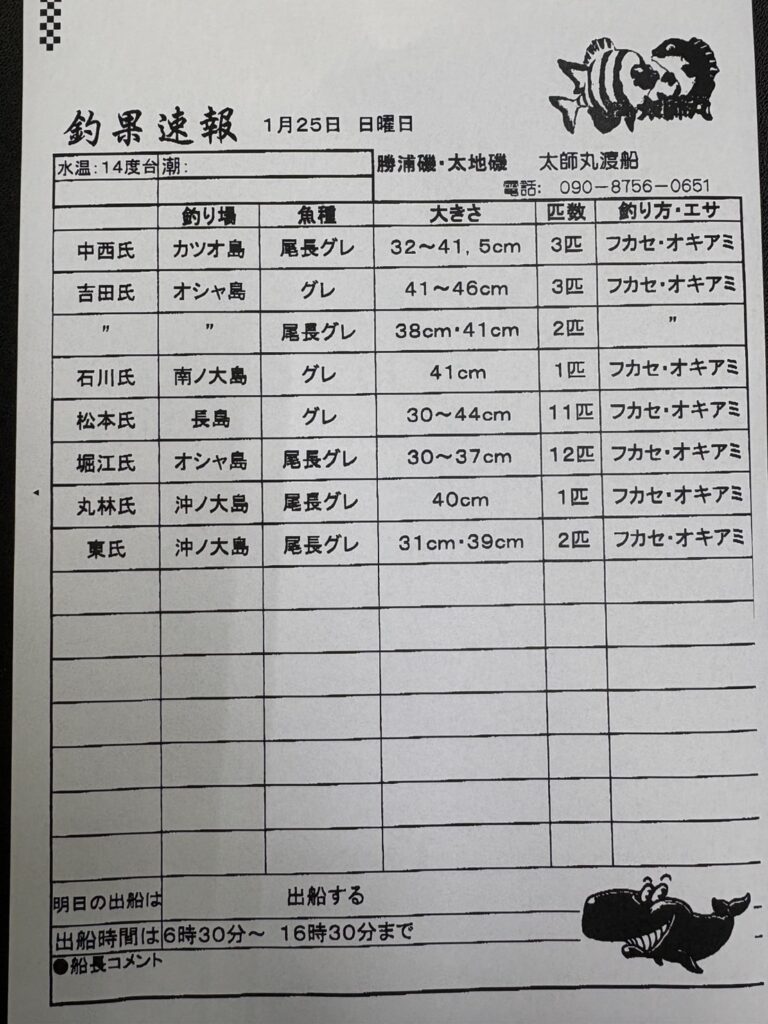 釣果速報 1月25日 日曜日
水温:14度台 潮: 勝浦磯・太地磯 太師丸渡船
電話: 090-8756-0651
釣り場 魚種 大きさ 匹数 釣り方・エサ
中西氏 カツオ島 尾長グレ 32～41,5cm 3匹 フカセ・オキアミ
吉田氏 オシャ島 グレ 41～46cm 3匹 フカセ・オキアミ
〃 〃 尾長グレ 38cm・41cm 2匹 〃
石川氏 南ノ大島 グレ 41cm 1匹 フカセ・オキアミ
松本氏 長島 グレ 30～44cm 11匹 フカセ・オキアミ
堀江氏 オシャ島 尾長グレ 30～37cm 12匹 フカセ・オキアミ
丸林氏 沖ノ大島 尾長グレ 40cm 1匹 フカセ・オキアミ
東氏 沖ノ大島 尾長グレ 31cm・39cm 2匹 フカセ・オキアミ
明日の出船は 出船する
出船時間は 6時30分～ 16時30分まで
●船長コメント